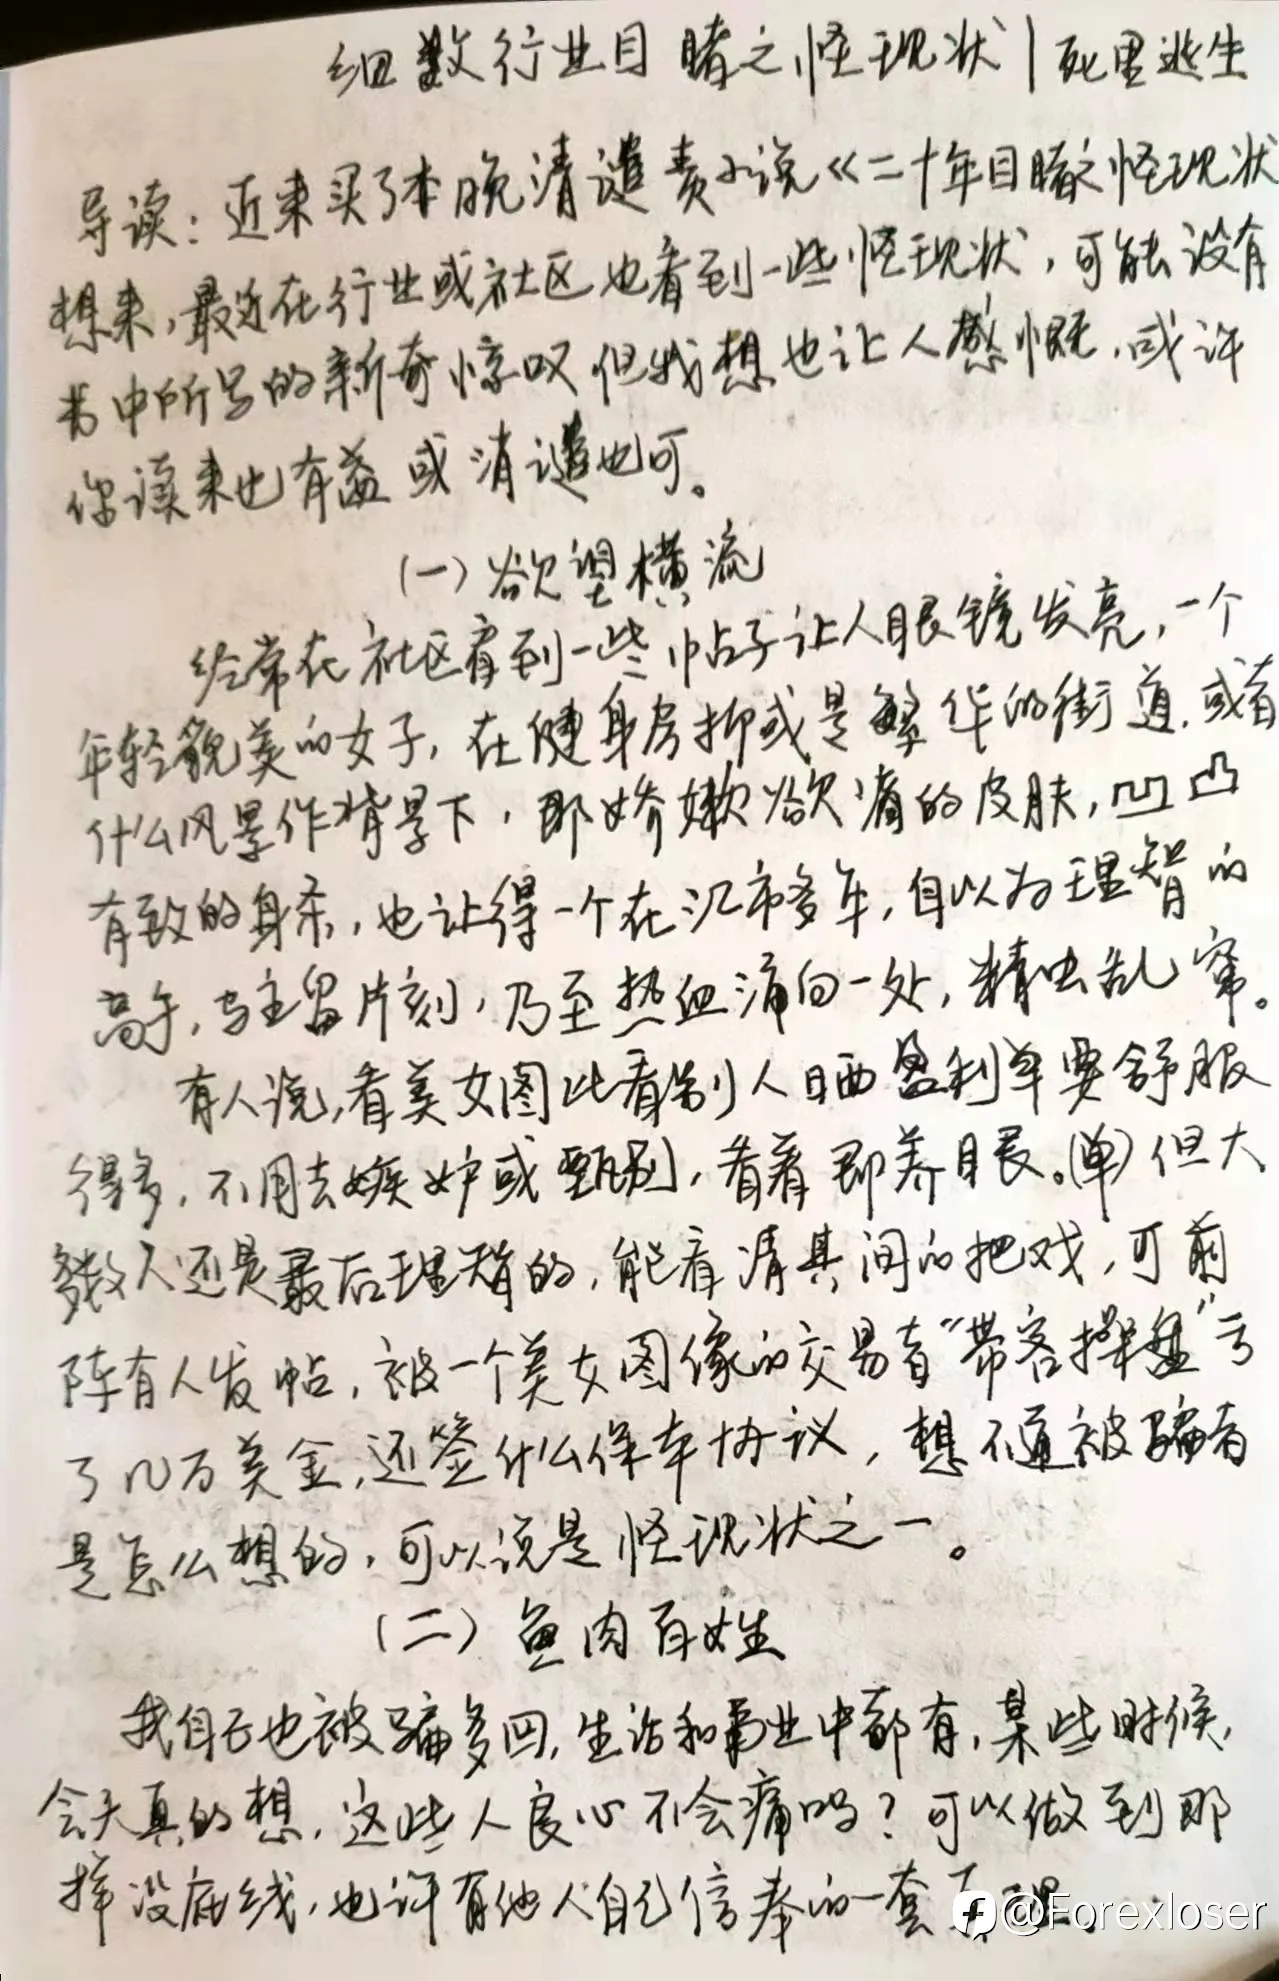 细数行业目睹之怪现状|死里逃生
导读：近来买了本晚清谴责小说《二十年目睹之怪现状
想来，最近在行业或社区也看到一些怪现状，可能没有
书中所写的新奇惊叹但我想也让人感慨，或许
你读来也有益或消遣也可。
（一）欲望横流
经常在社区看到一些帖子让人眼镜发亮，一个
年轻貌美的女子，在健身房抑或是繁华的街道，或者
什么风景作背景下，那娇嫩欲滴的皮肤，凹凸
有致的身条，也让得一个在汇市多年，自以为理智的
高手，驻留片刻，乃至热血涌向一处，精虫乱窜。
有人说，看美女图比看别人晒盈利单要舒服
得多，不用去嫉妒或甄别，看着即养眼。(单)但大
多数人还是最后理智的，能看清其间的把戏，可前
阵有人发帖，被一个美女图像的交易者“带客操盘”亏
了几万美金，还签什么保本协议，想不通被骗者
是怎么想的，可以说是怪现状之一。
（二）鱼肉百姓
我自己也被骗多回，生活和商业中都有，某些时候，
会天真的想，这些人良心不会痛吗？可以做到那
样没底线，也许有他人自己信奉的一套真理
@Forexloser